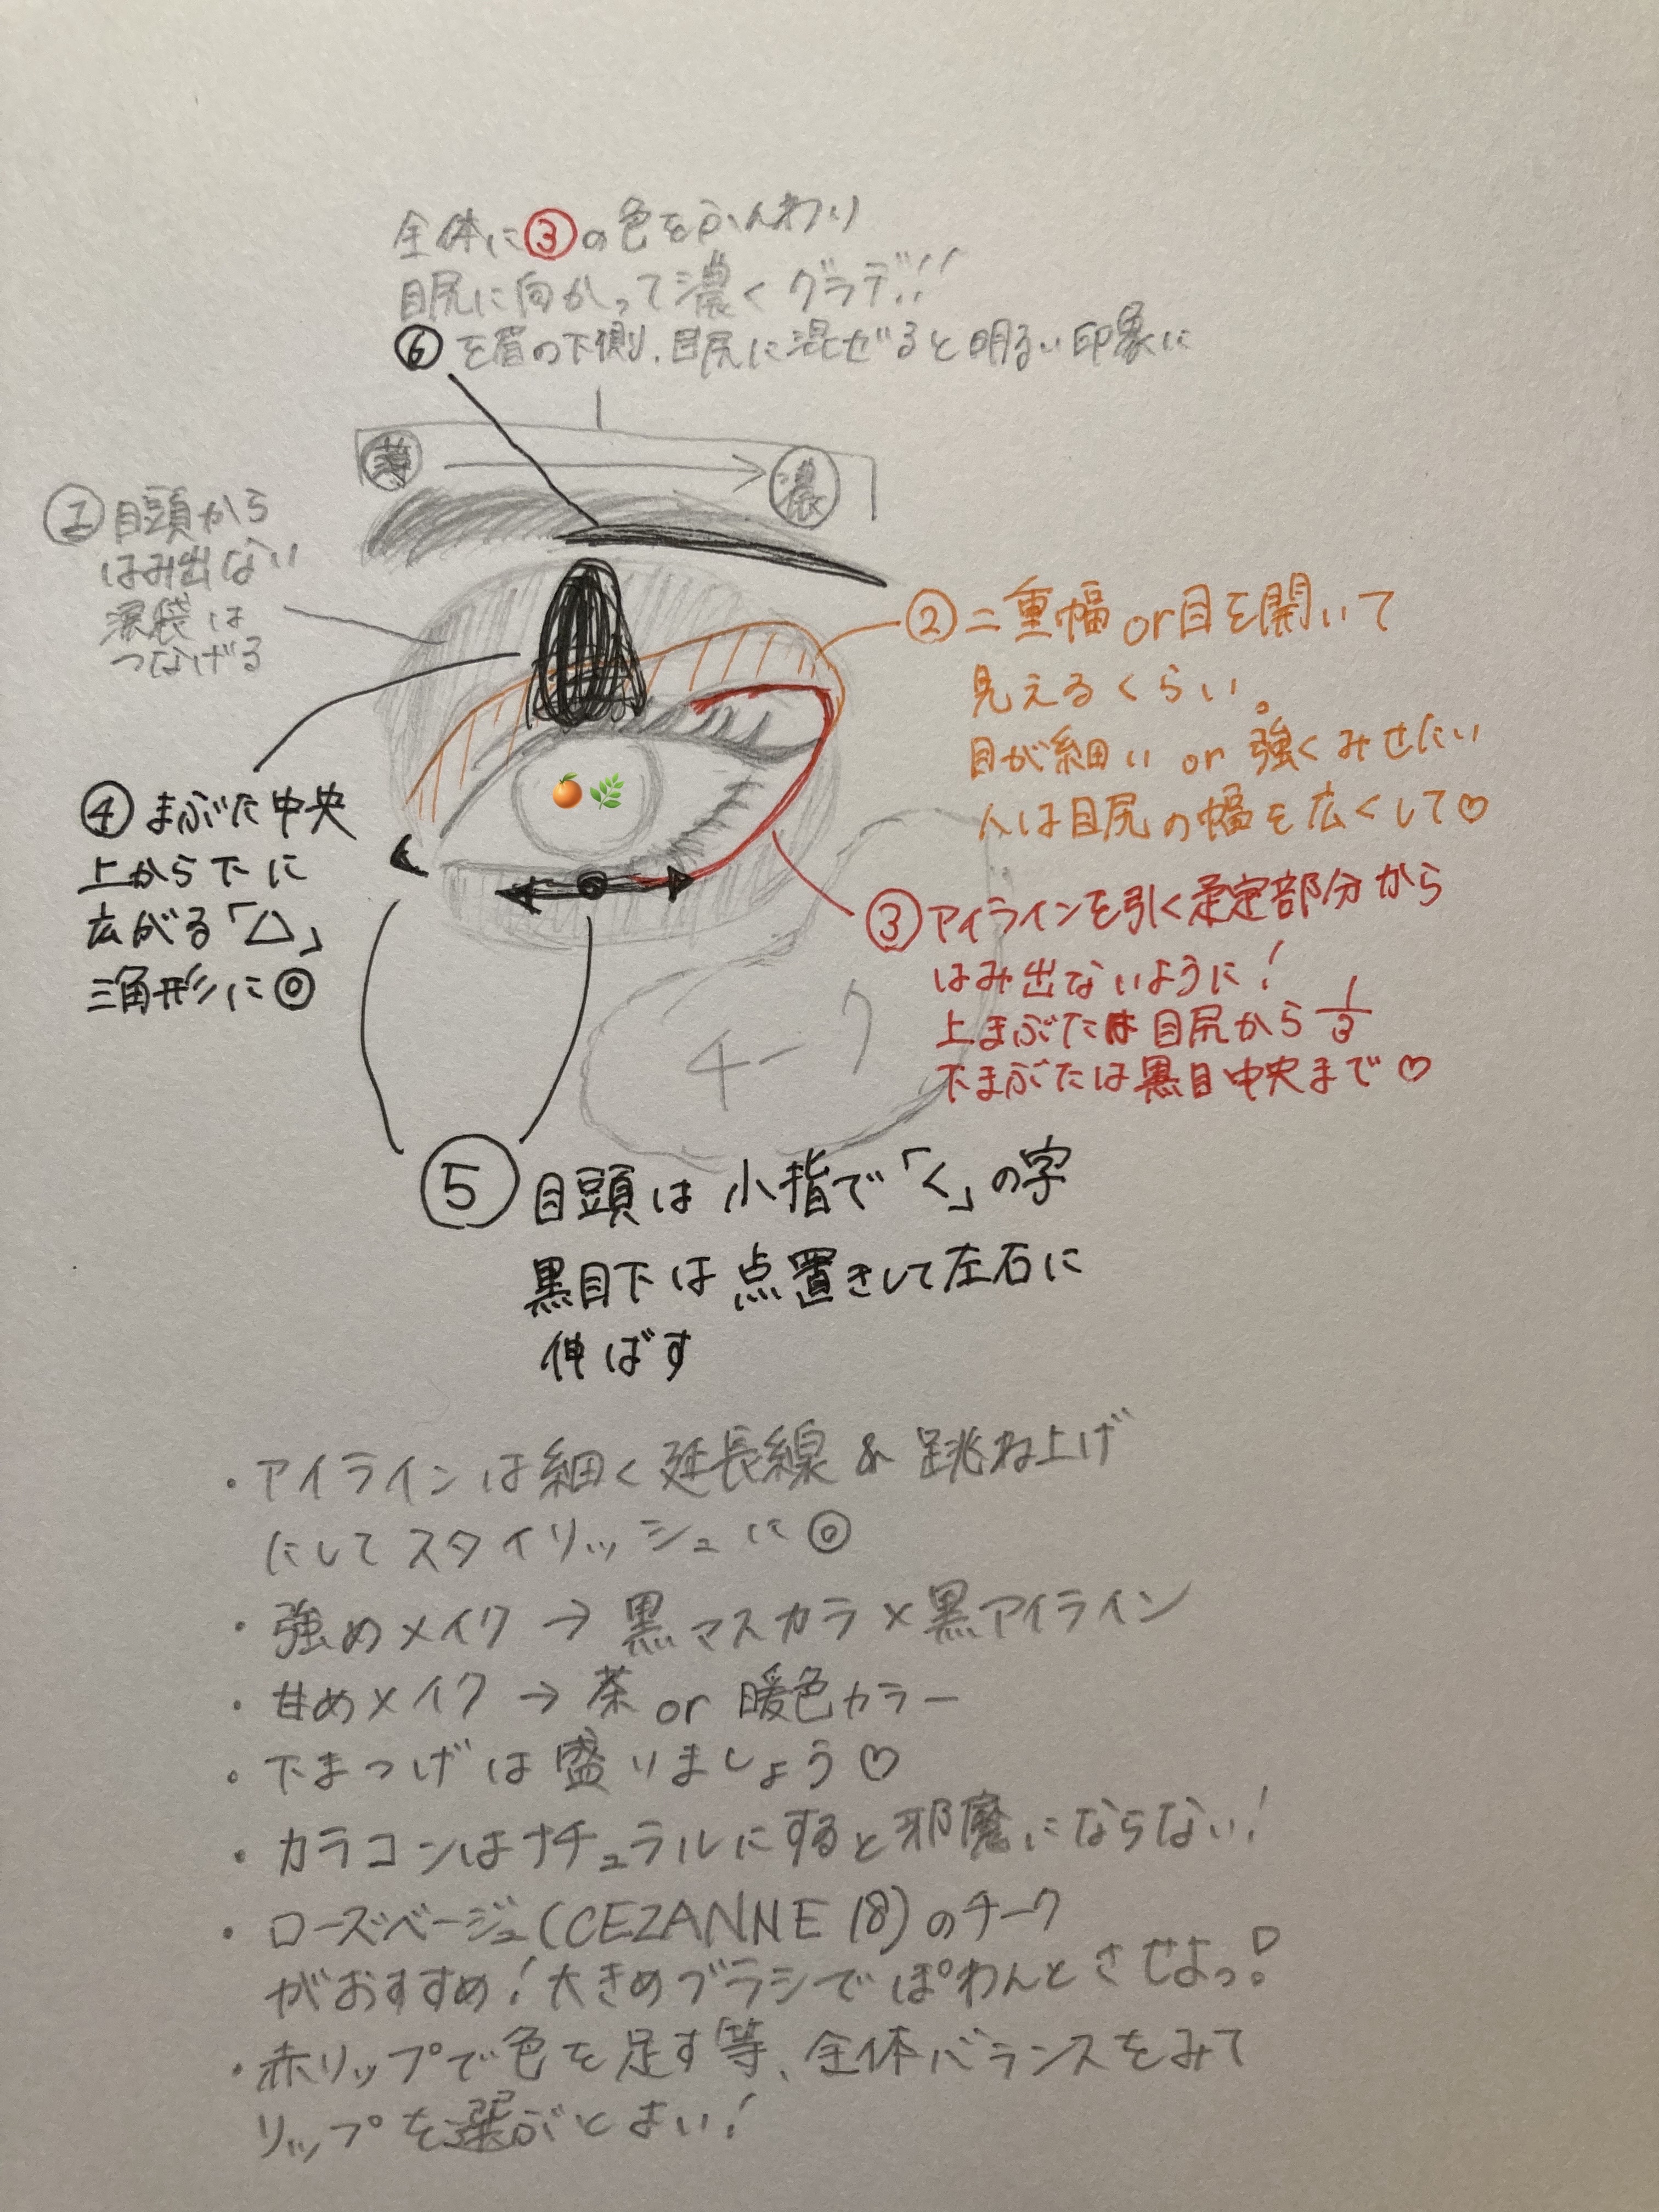 全体に③の色をふんわり
目尻に向かって濃くグラデ!!
⑥を眉の下側、目尻に混ぜると明るい印象に
薄
濃
①目頭から
はみ出ない
涙袋は
つなげる
②二重幅or目を開いて
見えるくらい。
目が細いor強くみせたい
人は目尻の幅を広くして♡
④まぶた中央
上から下に
広がる「△」
三角形に◎
③アイラインを引く予定部分から
はみ出ないように!
上まぶたは目尻から1/3
下まぶたは黒目中央まで♡
チーク
⑤目頭は小指で「く」の字
黒目下は点置きして左右に
伸ばす
・アイラインは細く延長線&跳ね上げ
にしてスタイリッシュに◎
・強めメイク→黒マスカラ×黒アイライン
・甘めメイク→茶or暖色カラー
・下まつげは盛りましょう♡
・カラコンはナチュラルにすると邪魔にならない!
・ローズベージュ(CEZANNE 18)のチーク
がおすすめ!大きめブラシでぽわんとさせよっ!
・赤リップで色を足す等、全体バランスをみて
リップを選ぶとよい!